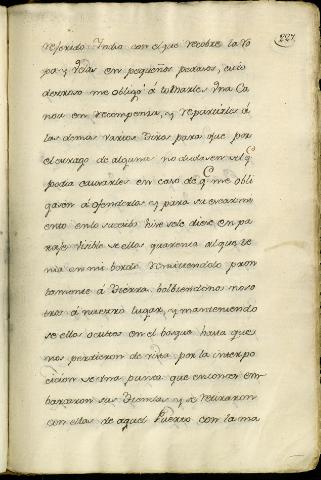 227.
referido Yndio con el que recobre la ro
pa y Velas en pequeños pedasos, cuio
destroso me obligó á tomarles una Ca
noa en recompenza, y repartirles á
las demas varios tiros para que por
el estrago de alguna no dudasen el q.e
podia causarles en caso de q.e me obli
gasen á ofenderlas y para su escarmi
ento en lo sucesibo hise se le diese en pa
raje visible de ellos quarenta al que te
nia en mi bordo remitiendolo pron
tamente á tierra bolbiendonos noso
tros á nuestro lugar, y manteniendo
se ellos ocultos en el bosque hasta que
nos perdieron de vista por la interpo
cicion de una punta que entonces em
barcaron sus y se retiraron
con ellas de aquel Puerto con la ma